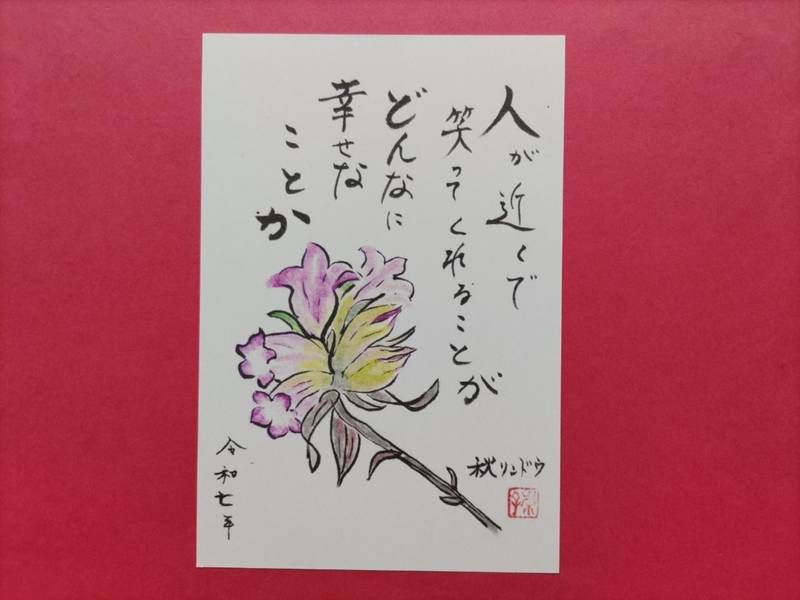 人が近くで
笑ってくれることが
どんなに
幸せな
ことか
秋リンドウ
令和七年